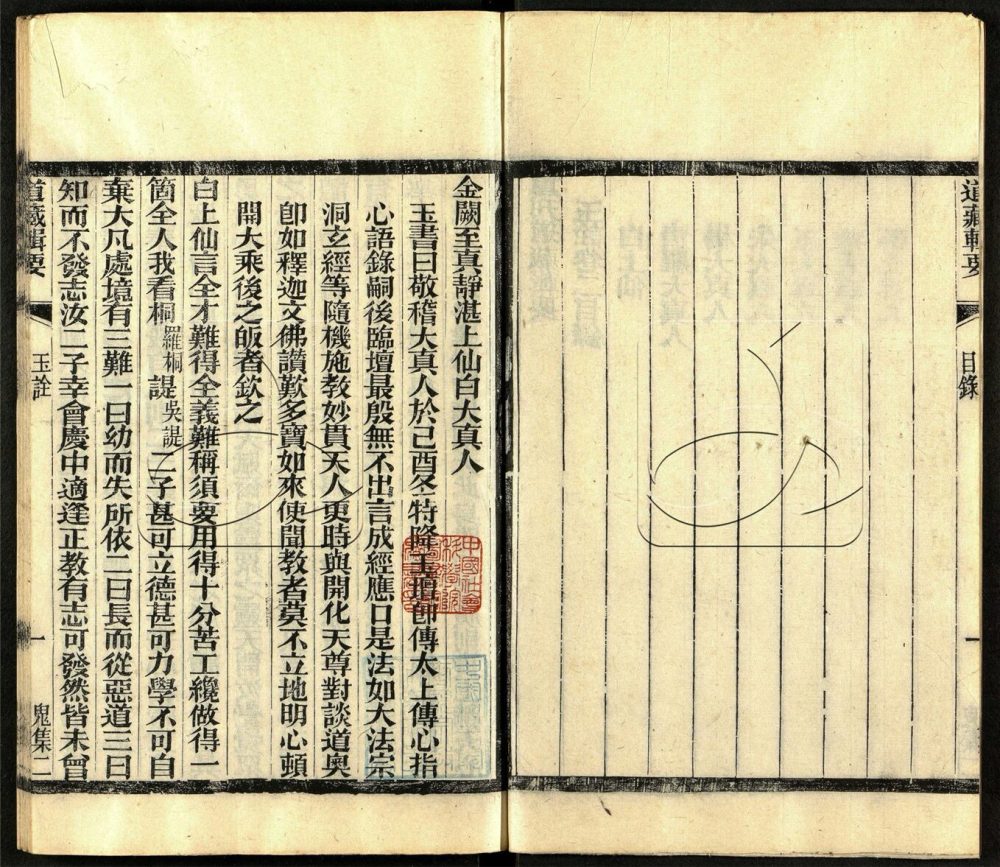 道藏輯要
目錄
一
金闕至真靜湛上仙白大真人
玉書曰敬稽大真人於己酉冬特降玉壇卽傳太上傳心指
心語錄嗣後臨壇最殷無不出言成經應口是法如大法宗
洞玄經等隨機施敎妙貫天人更時與開化天尊對談道奧
卽如釋迦文佛讚歎多寶如來使聞敎者莫不立地明心頓
開大乘後之皈者欽之
白上仙言全才難得全義難稱須要用得十分苦工纔做得一
箇全人我看桐羅桐諟吳諟二子甚可立德甚可力學不可自
棄大凡處境有三難一曰幼而失所依二曰長而從惡道三曰
知而不發志汝二子幸會慶中適逢正敎有志可發然皆未曾
道藏輯要
玉詮
一
鬼集二